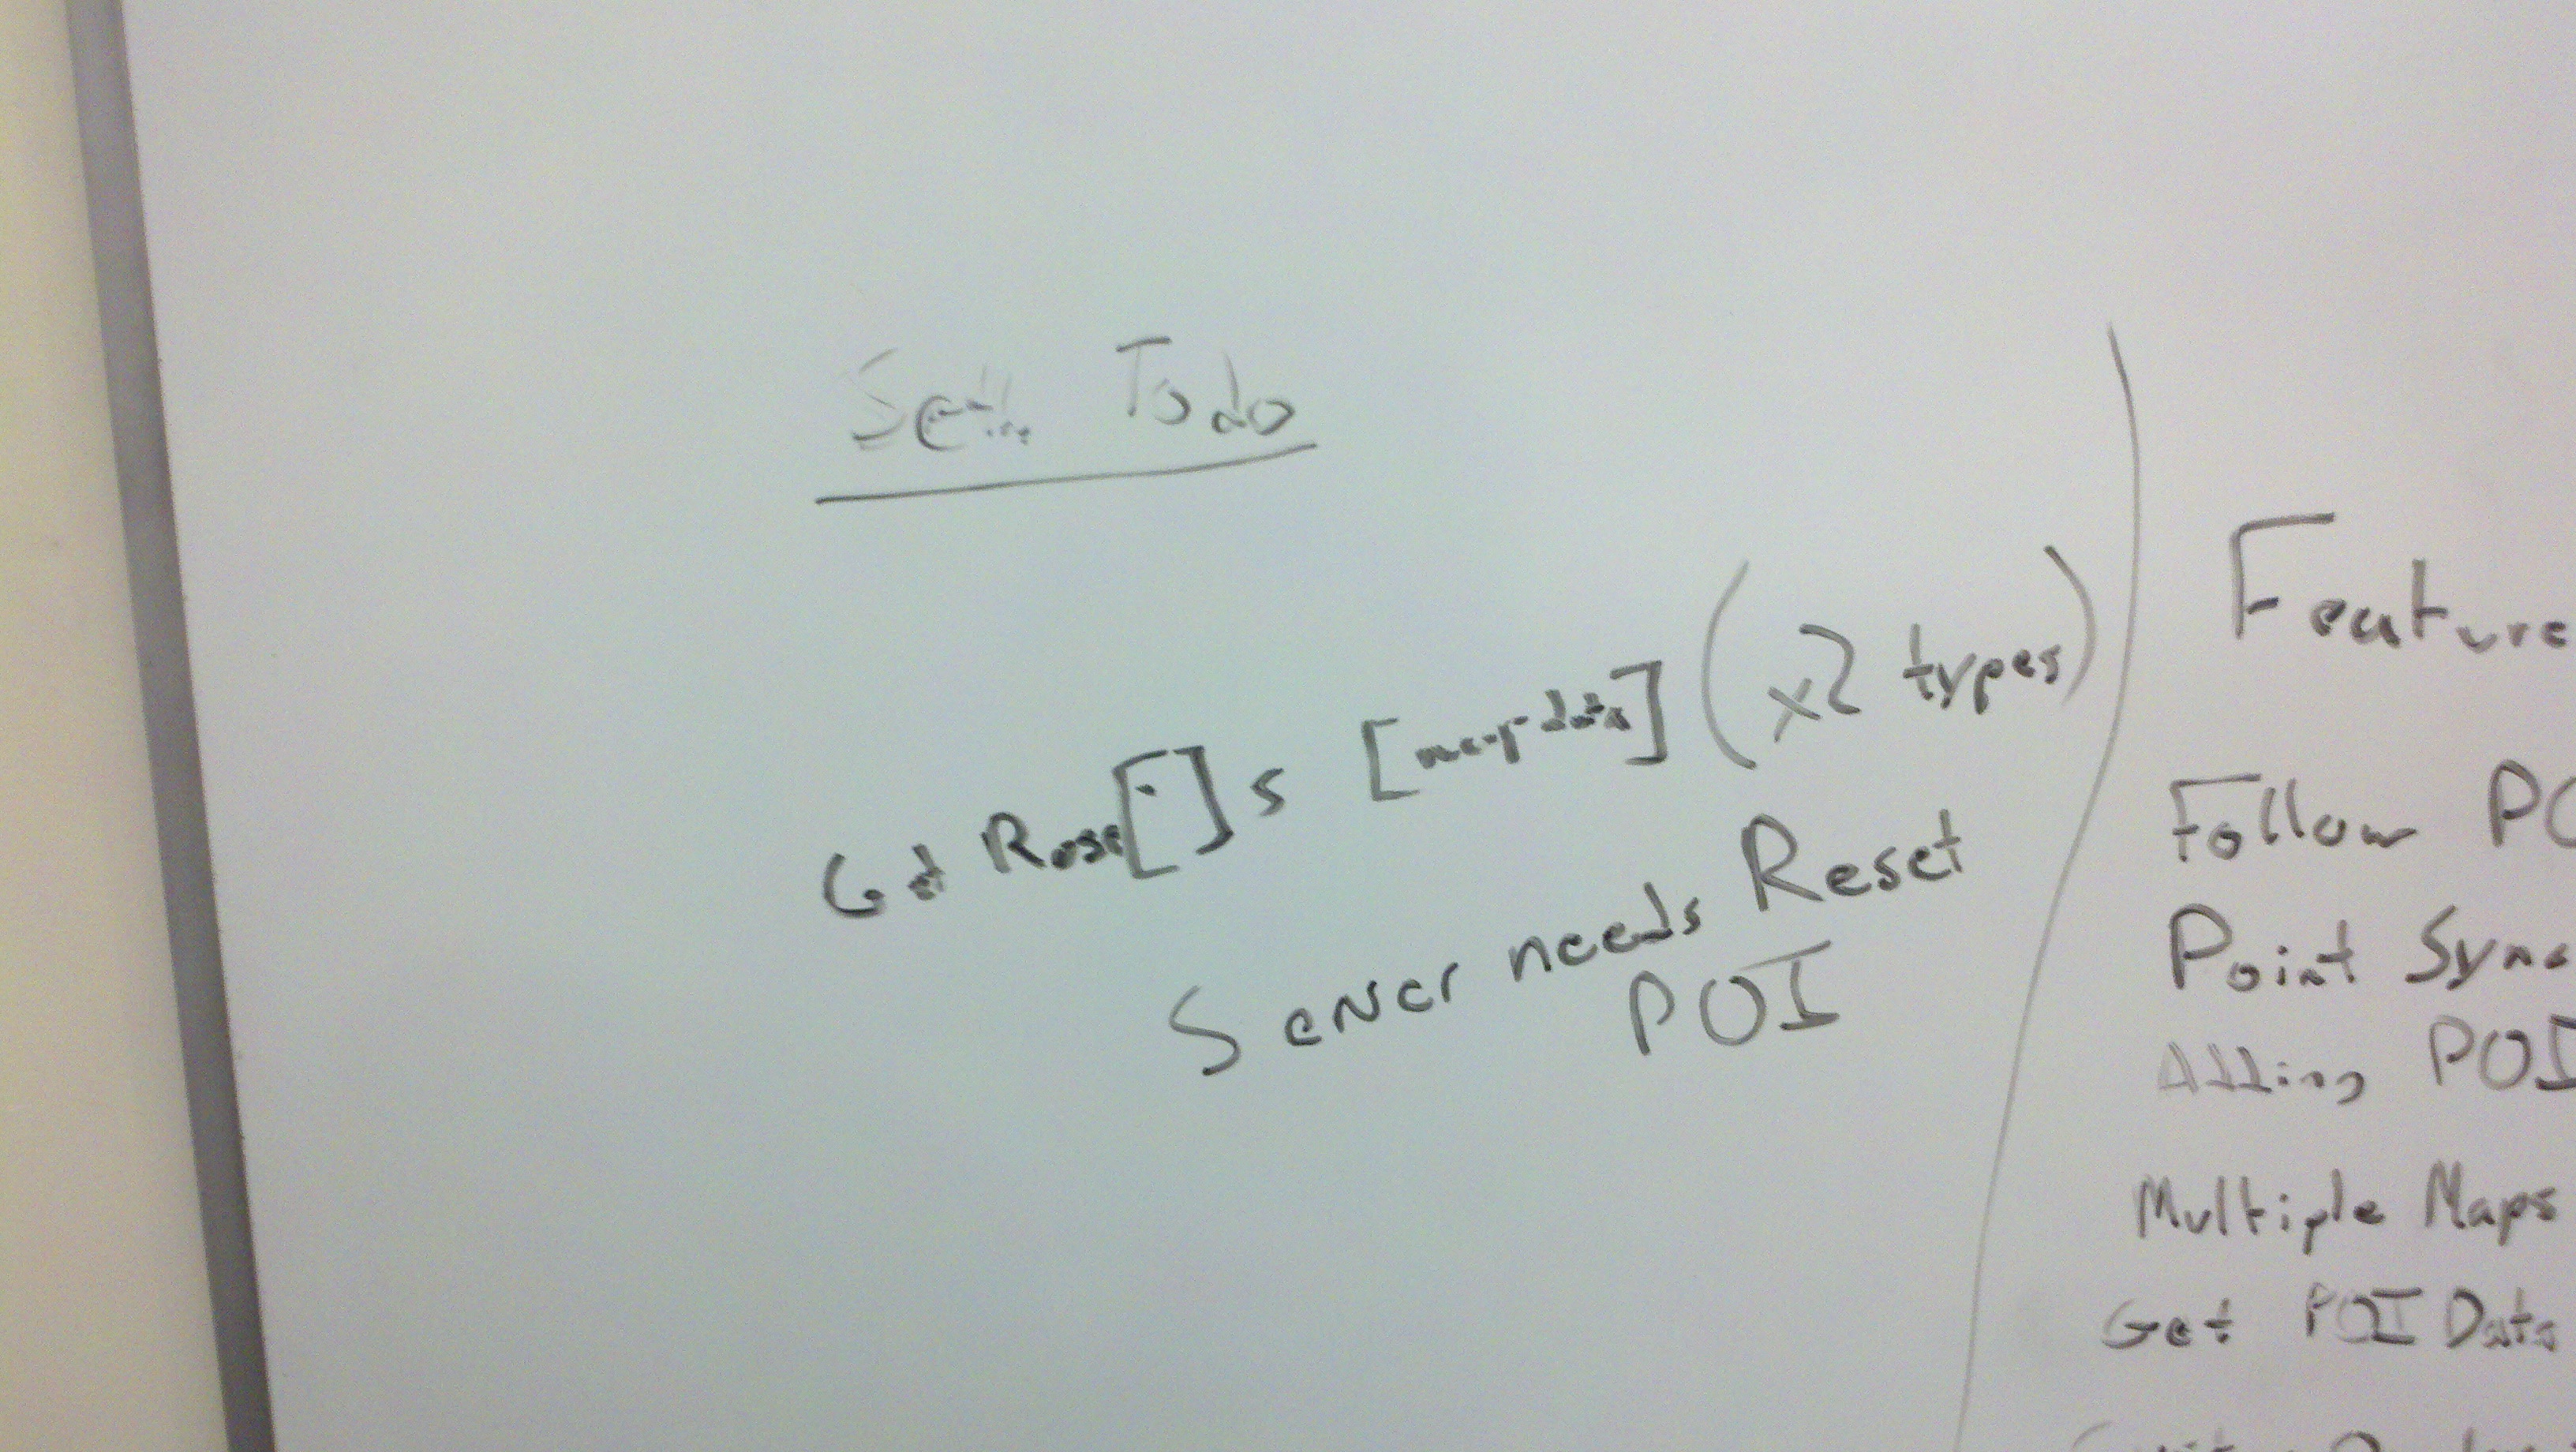 Seth Todo
Get Rose[']s [map data] (x2 types)
Server needs Reset
POI
Feature
Follow PO
Point Sync
Adding POI
Multiple Maps
Get POI Data